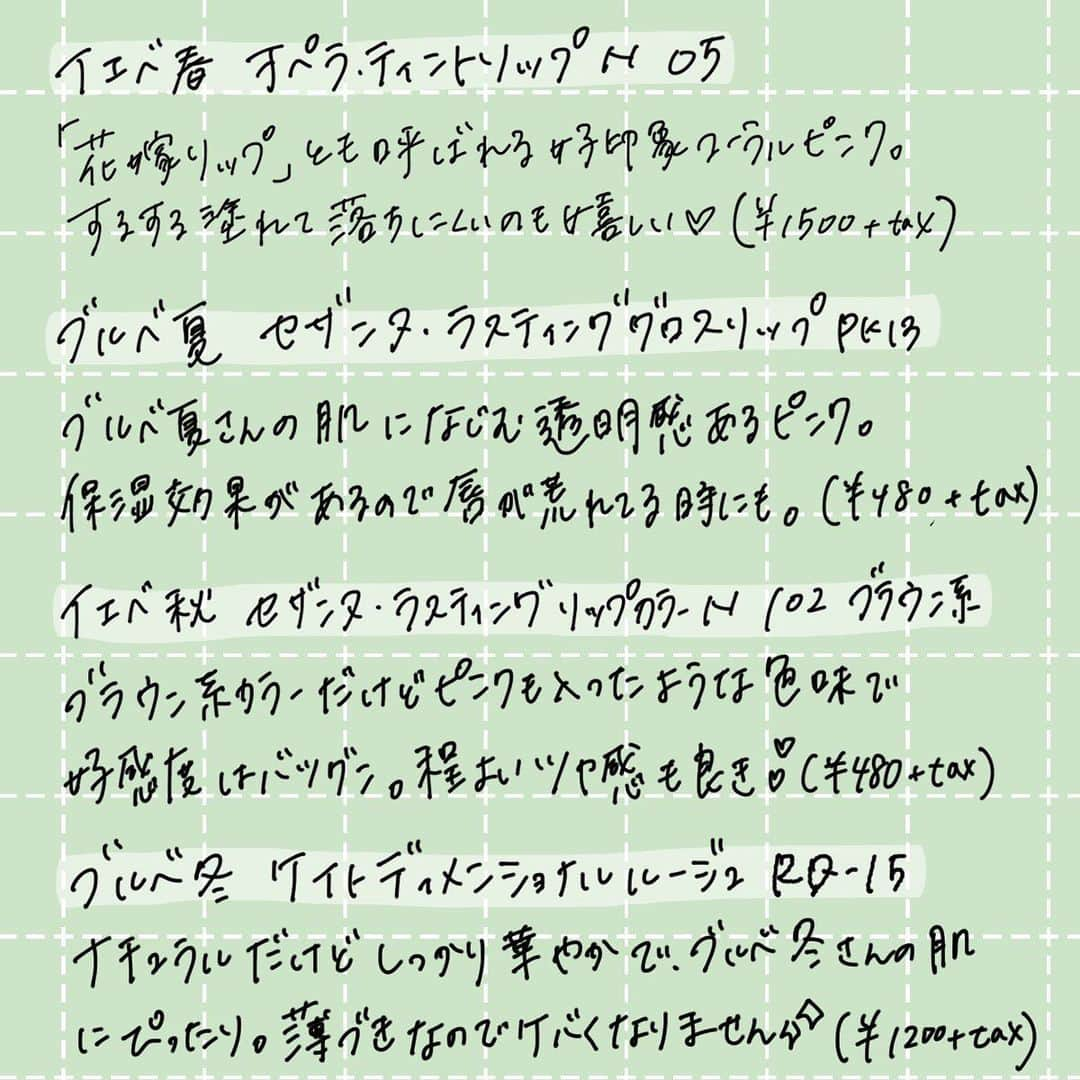 イエベ春 オペラ・ティントリップN 05
「花嫁リップ」とも呼ばれる好印象コーラルピンク。
するする塗れて落ちにくいのも嬉しい♡(¥1500+tax)
ブルベ夏 セザンヌ・ラスティンググロスリップPK13
ブルベ夏さんの肌になじむ透明感あるピンク。
保湿効果があるので唇が荒れてる時にも。(¥480+tax)
イエベ秋 セザンヌ・ラスティングリップカラーN 102 ブラウン系
ブラウン系カラーだけどピンクも入ったような色味で
好感度はバツグン。程よいツヤ感も良き♡(¥480+tax)
ブルベ冬 ケイトディメンショナルルージュ RD-15
ナチュラルだけどしっかり華やかで、ブルベ冬さんの肌
にぴったり。薄づきなのでケバくなりません◇(¥1200+tax)